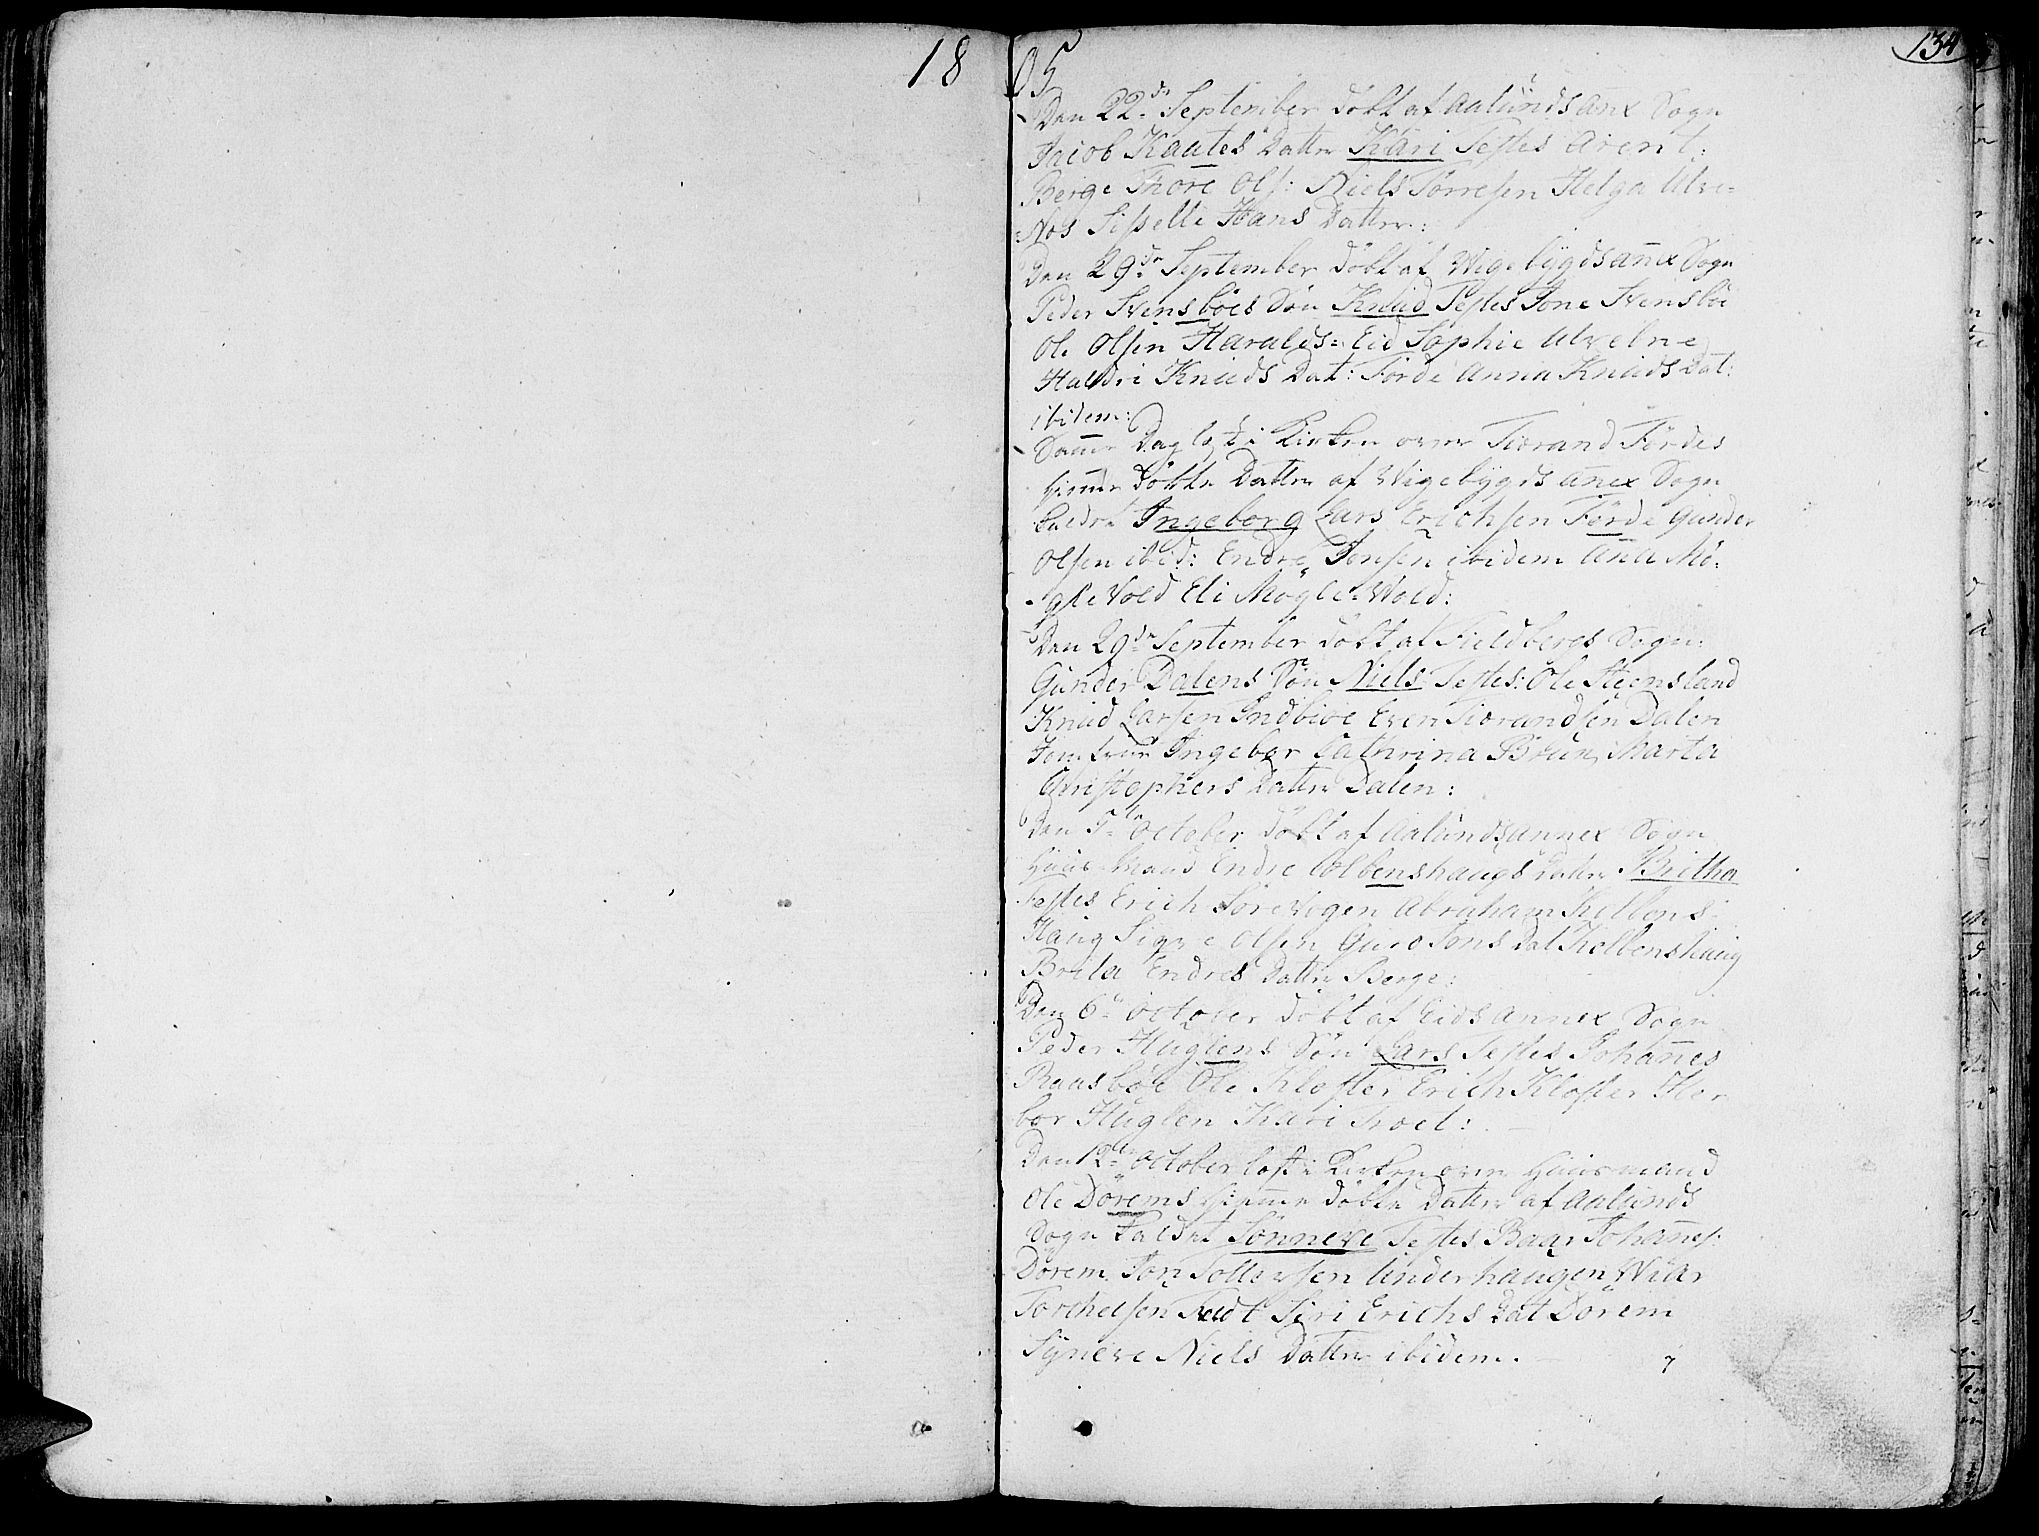 1805
134
Den 22de September döbt af Aalunds anx Sogn
Jacob Kaates Datter Kari Testes Arent
Berge Thore Ols: Niels Torresen Helga Ulve=
=Nos Sisselle Hans Datter:
Den 29de September döbt af Wigebÿgds añex Sogn
Peder Svensböes Sön Knud Testes Tone Svensböe
Ole Olsen Haralds=Eid Sophie Ulvelne
Haldri Knuds Dat: Förde Anna Knuds Dat:
ibidem:
Samme Dag lÿst i Kirken over Tiorand Fördes
hieme döbte Datter af Wigebÿgds añex Sogn
kaldet Ingeborg Lars Erichsen Förde Gunder
Olsen ibid: Endre Jonsen ibidem Aña Mö=
=gleVold Eli Mögle=Vold:
Den 29de September döbt af Fieldbergs Sogn:
Gunder Dalens Sön Niels Testes: Ole Steensland
Knud Larsen Indbiöe Even Tiorandsen Dalen
Jomfrue Ingebor Cathrina Brun, Marta
Christophers Datter Dalen:
Den 5te October döbt af Aalunds annex Sogn
Huus Mand Endre Colbenshaugs Datter Britha
Testes Erich Sörevigen Abraham Kolbens=
Haug Sigve Olsen Guro Jons Dat Kolbenshaug
Brita Endres Datter Berge:
Den 6te October döbt af Eids annex Sogn
Peder Huglens Sön Lars Testes Johañes
Raasböe Ole Kloster Erich Kloster Her
bor Huglen Kari Troet:
Den 12te October lÿst i Kirken over Huusmand
Ole Dörems hieme döbte Datter af Aalunds
Sogn kaldet Sönneve Testes Baar Johañes:
Dörem Jon Tollevsen Underhaugen Wiar
Torchelsen Tvedt Siri Erichs Dat Dörem
Sÿneve Niels Datter ibidem.